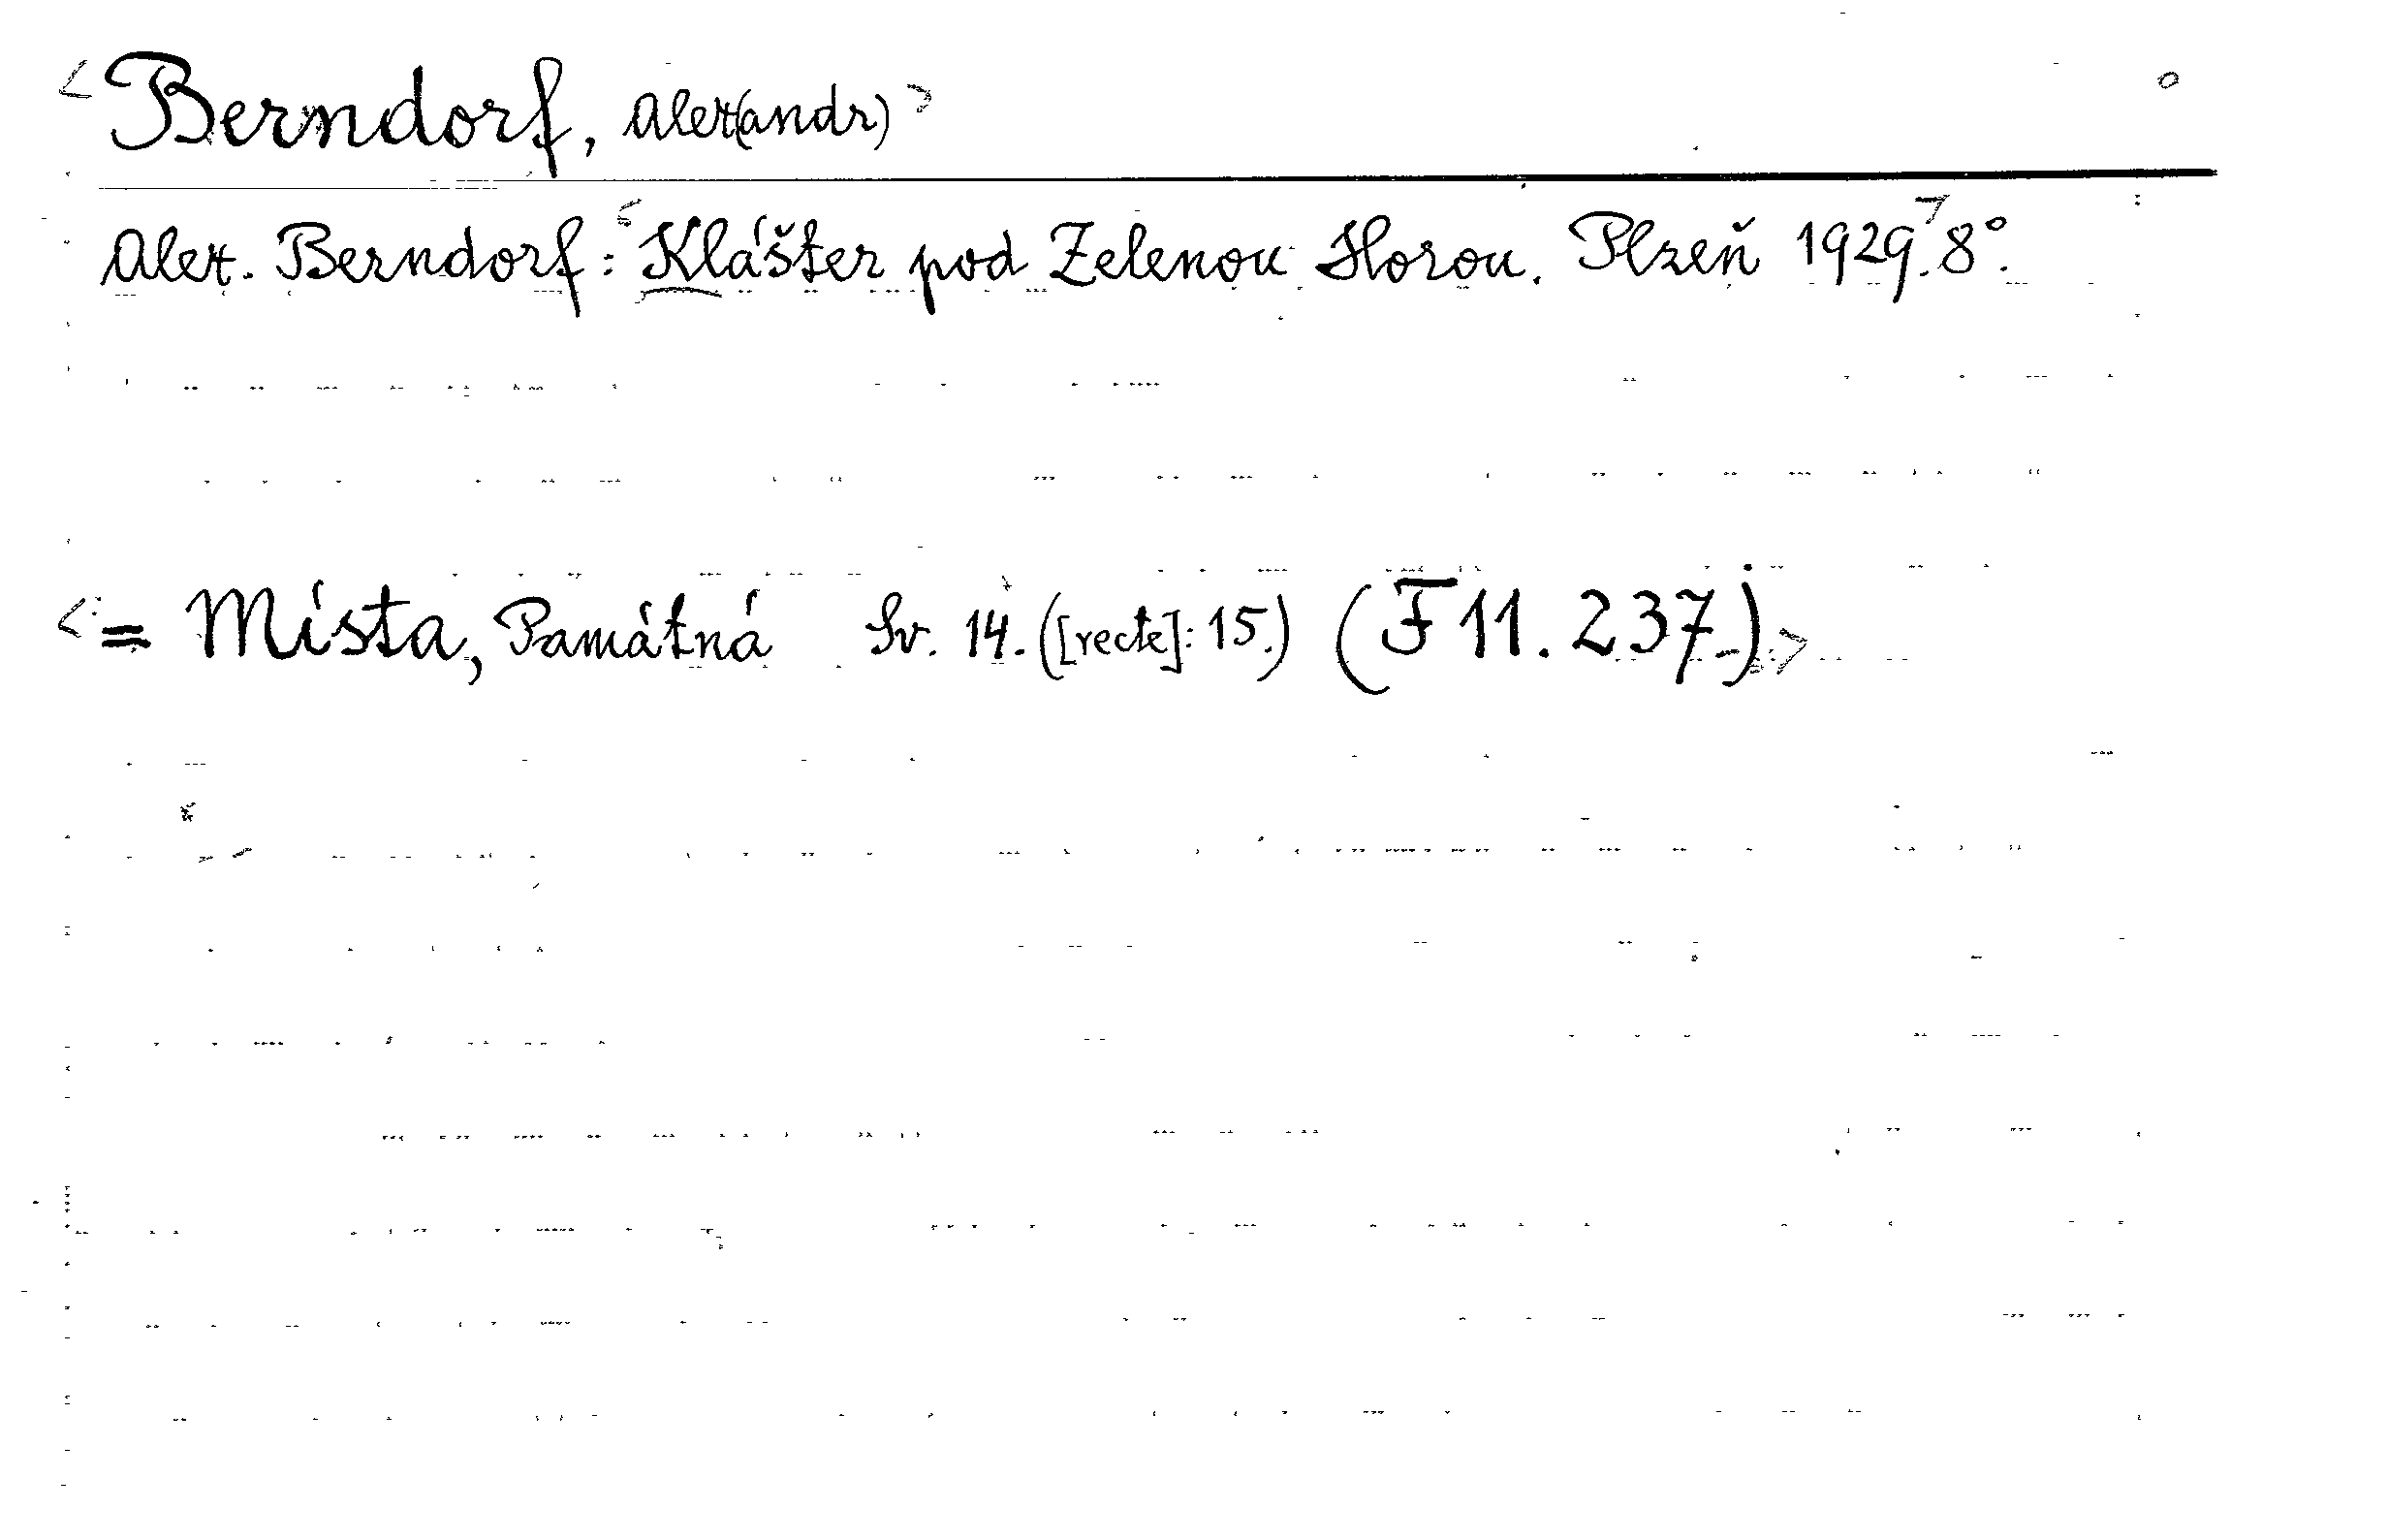 <Berndorf, Alex(andr)>
Alex. Berndorf: <Klášter pod Zelenou Horou. Plzeň 1929.> 8°.
<= Místa, Památná Sv. 14. ([recte]: 15.) (F 11. 237.)>